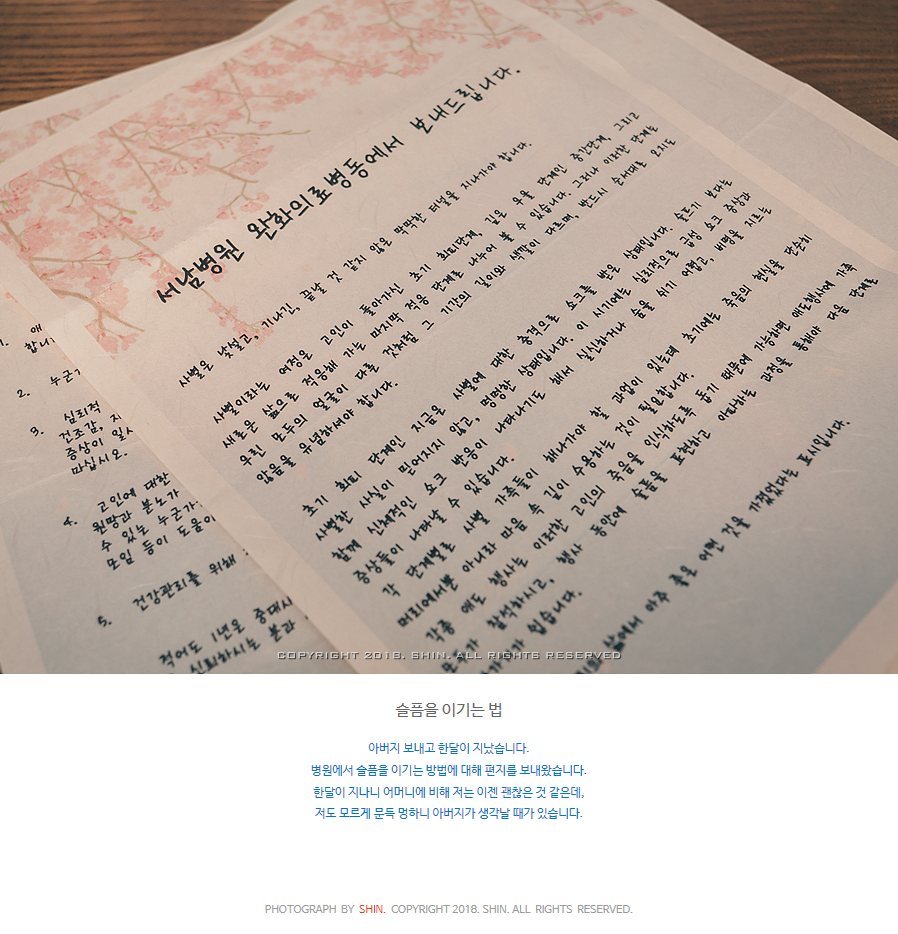 서남병원 완화의료병동에서 보내드립니다.
사별은 낯설고, 기나긴, 끝날 것 같지 않은 막막한 터널을 지나가야 합니다.
사별이라는 여정은 고인이 돌아가신 초기 회피단계, 깊은 우울 단계인 중간단계, 그리고
새로운 삶으로 적응해 가는 마지막 적응 단계로 나누어 볼 수 있습니다. 그러나 이러한 단계는
우린 모두의 얼굴이 다른 것처럼 그 기간의 길이와 색깔이 다르며, 반드시 순서대로 오지도
않음을 유념하셔야 합니다.
초기 회피 단계인 지금은 사별에 대한 충격으로 쇼크를 받은 상태입니다. 슬프기 보다는
사별한 사실이 믿어지지 않고, 멍멍한 상태입니다. 이 시기에는 심리적으로 급성 쇼크 증상과
함께 신체적인 쇼크 반응이 나타나기도 해서 실신하거나 숨을 쉬기 어렵고, 비명을 지르는
증상들이 나타날 수 있습니다.
각 단계별로 사별 가족들이 해나가야 할 과업이 있는데 초기에는 죽음의 현실을 단순히
머리에서뿐 아니라 마음 속 깊이 수용하는 것이 필요합니다.
각종 애도 행사는 이러한 고인의 죽음을 인식하도록 돕기 때문에 가능하면 애도행사에 가족
모두가 참석하시고, 행사 동안에 슬픔을 표현하고 애도하는 과정을 통해야 다음 단계로
쉽습니다.
삶에서 아주 좋은 어떤 것을 가졌었다는 표시입니다.
1. 애
합니
2. 누군가
3. 심리적
건조감, 지
증상이 일시
마십시오.
4. 고인에 대한
원망과 분노가
수 있는 누군가
모임 등이 도움이
5. 건강관리를 위해
적어도 1년은 중대사
신뢰하시는 분과
COPYRIGHT 2018. SHIN. ALL RIGHTS RESERVED
슬픔을 이기는 법
아버지 보내고 한달이 지났습니다.
병원에서 슬픔을 이기는 방법에 대해 편지를 보내왔습니다.
한달이 지나니 어머니에 비해 저는 이젠 괜찮은 것 같은데,
저도 모르게 문득 멍하니 아버지가 생각날 때가 있습니다.
PHOTOGRAPH BY SHIN. COPYRIGHT 2018. SHIN. ALL RIGHTS RESERVED.